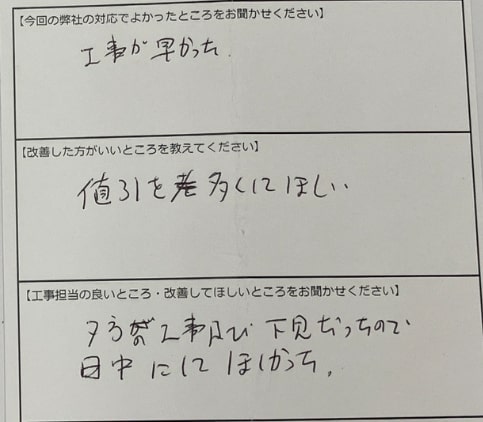 【今回の弊社の対応でよかったところをお聞かせください】
工事が早かった
【改善した方がいいところを教えてください】
値引を多くしてほしい
【工事担当の良いところ・改善してほしいところをお聞かせください】
夕方工事及び下見だったので
日中にしてほしかった。